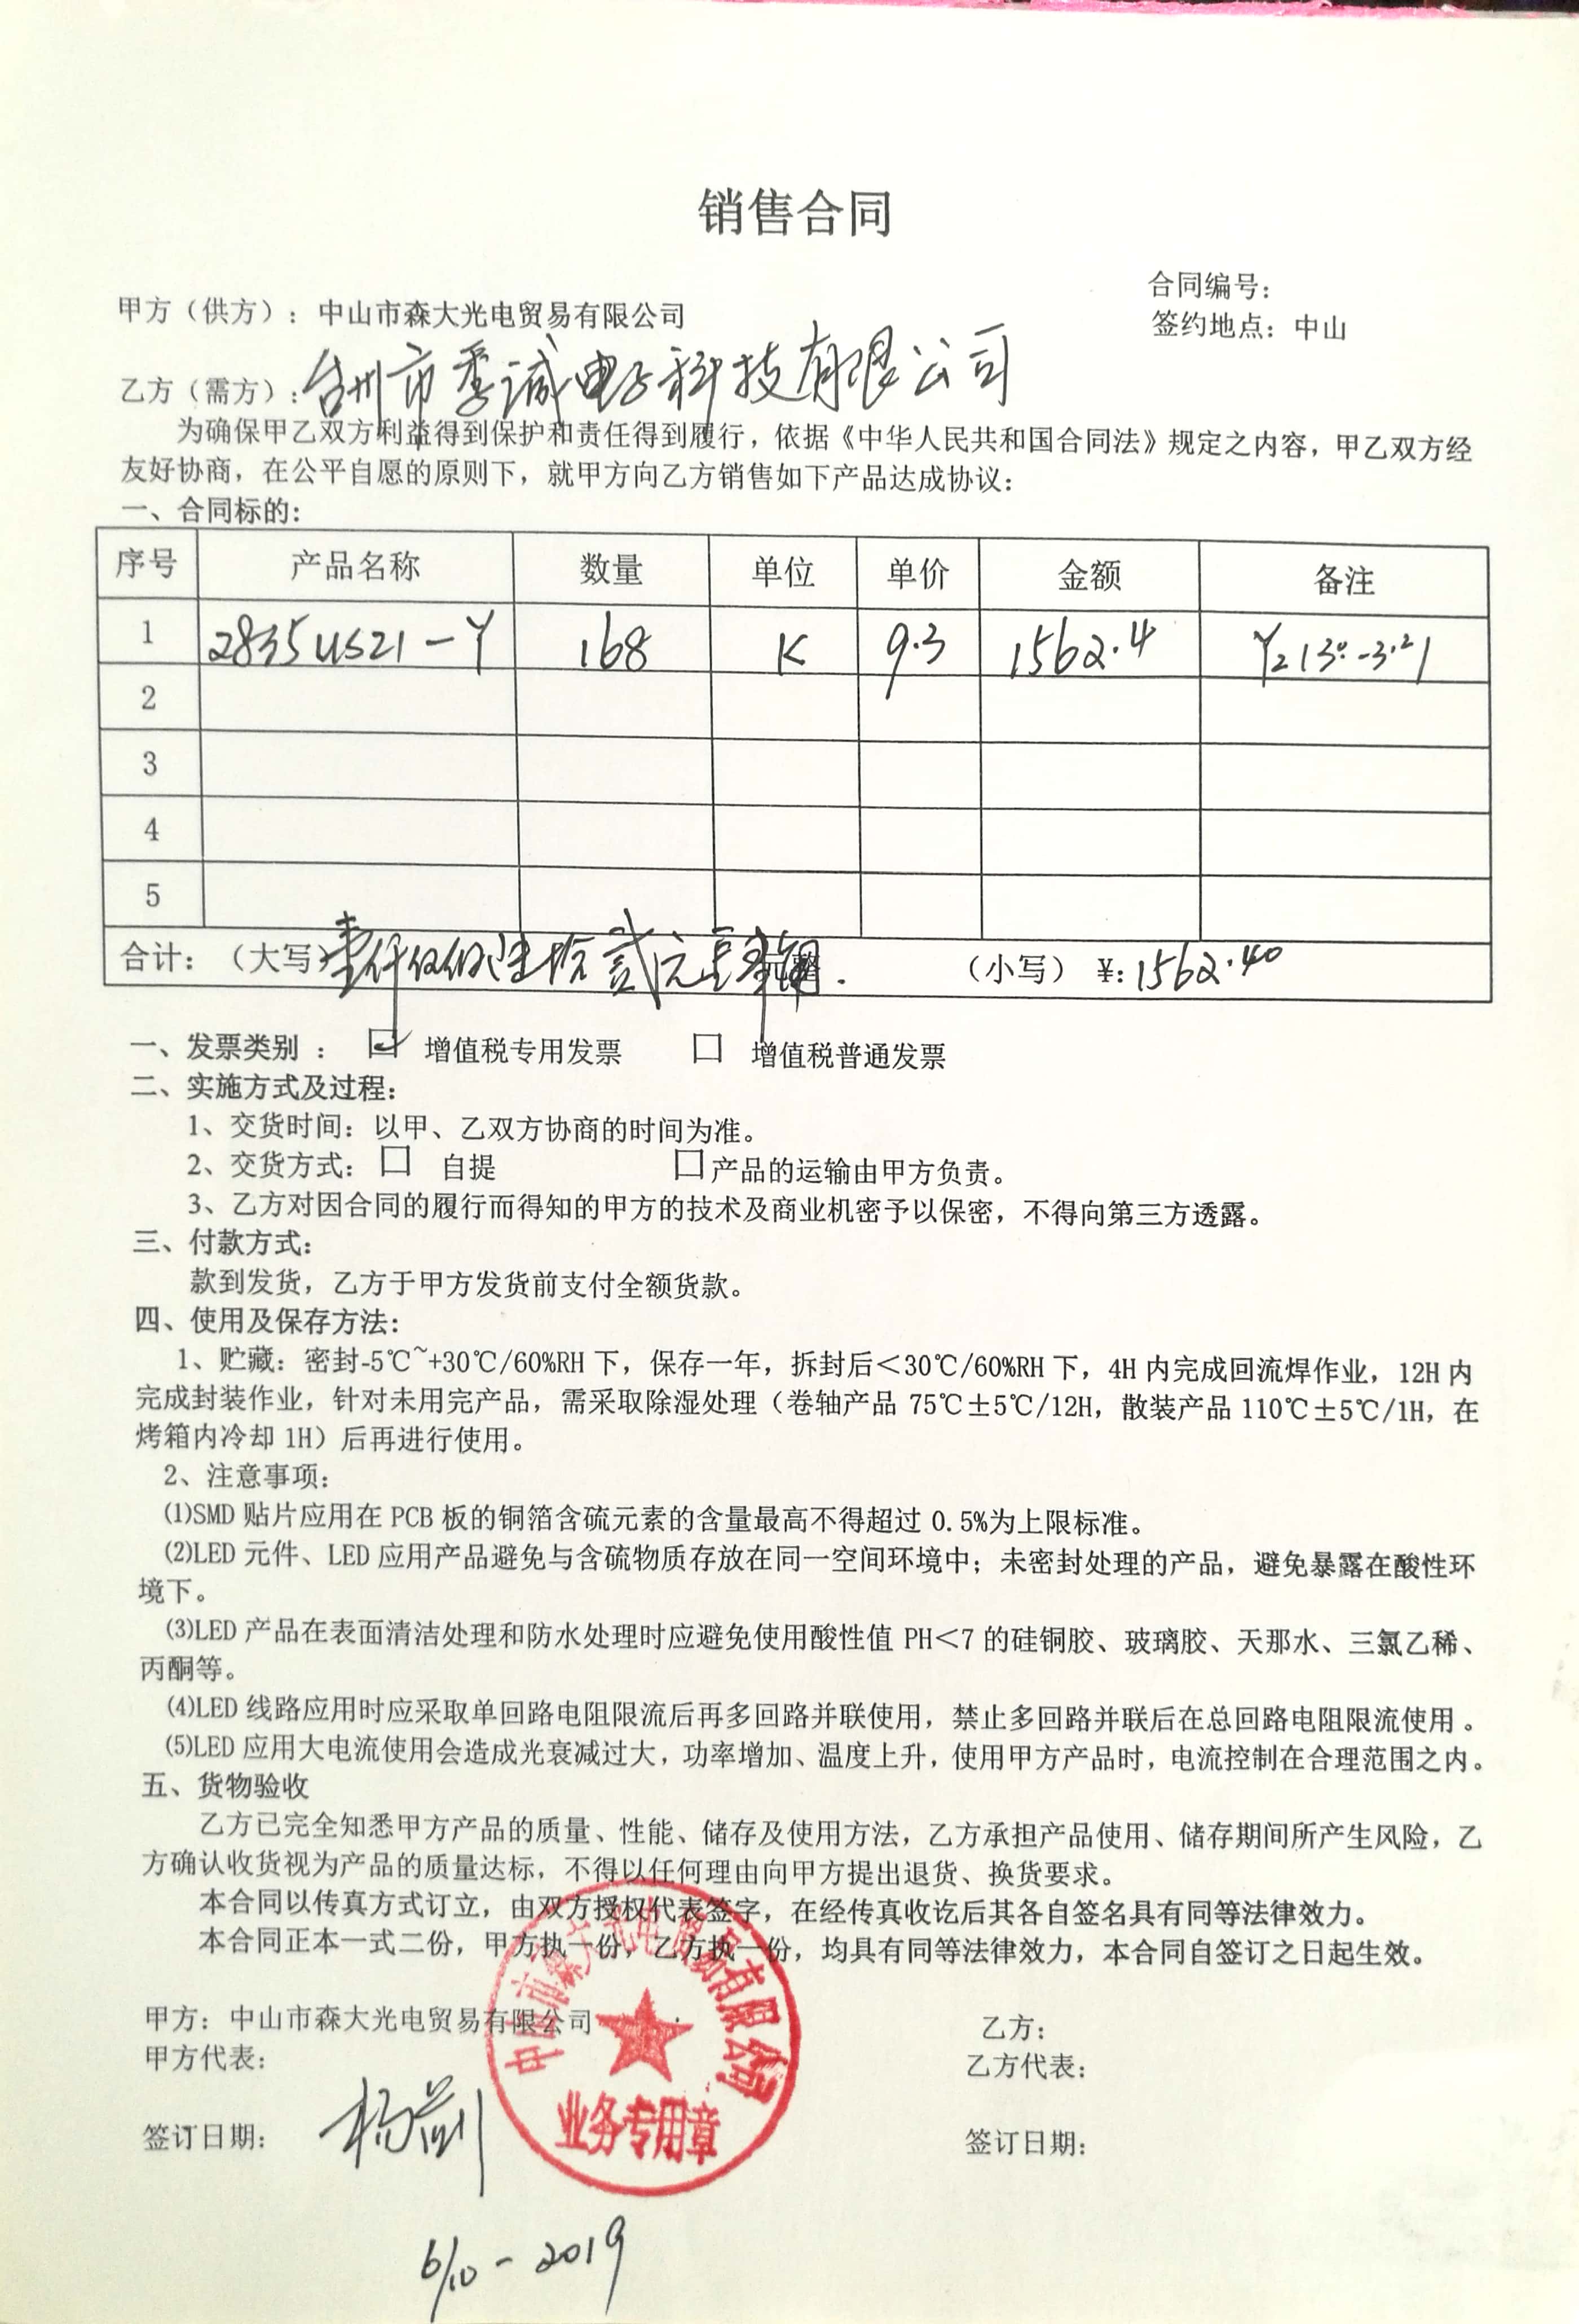 销售合同
合同编号：
甲方（供方）：中山市森大光电贸易有限公司
签约地点：中山
乙方（需方）：台州市季诚电子科技有限公司
为确保甲乙双方利益得到保护和责任得到履行，依据《中华人民共和国合同法》规定之内容，甲乙双方经
友好协商，在公平自愿的原则下，就甲方向乙方销售如下产品达成协议：
一、合同标的：
序号 产品名称 数量 单位 单价 金额 备注
1 2835US21-Y 168 K 9.3 1562.4
2
3
4
5
合计：（大写）壹仟伍佰陆拾贰元 （小写）¥:1562.40
一、发票类别： ☑ 增值税专用发票 □ 增值税普通发票
二、实施方式及过程：
1、交货时间：以甲、乙双方协商的时间为准。
2、交货方式：□ 自提 □产品的运输由甲方负责。
3、乙方对因合同的履行而得知的甲方的技术及商业机密予以保密，不得向第三方透露。
三、付款方式：
款到发货，乙方于甲方发货前支付全额货款。
四、使用及保存方法：
1、贮藏：密封-5℃~+30℃/60%RH下，保存一年，拆封后＜30℃/60%RH下，4H内完成回流焊作业，12H内
完成封装作业，针对未用完产品，需采取除湿处理（卷轴产品75℃±5℃/12H，散装产品110℃±5℃/1H，在
烤箱内冷却1H）后再进行使用。
2、注意事项：
⑴SMD贴片应用在PCB板的铜箔含硫元素的含量最高不得超过0.5%为上限标准。
⑵LED元件、LED应用产品避免与含硫物质存放在同一空间环境中；未密封处理的产品，避免暴露在酸性环
境下。
⑶LED产品在表面清洁处理和防水处理时应避免使用酸性值PH＜7的硅铜胶、玻璃胶、天那水、三氯乙稀、
丙酮等。
⑷LED线路应用时应采取单回路电阻限流后再多回路并联使用，禁止多回路并联后在总回路电阻限流使用。
⑸LED应用大电流使用会造成光衰减过大，功率增加、温度上升，使用甲方产品时，电流控制在合理范围之内。
五、货物验收
乙方已完全知悉甲方产品的质量、性能、储存及使用方法，乙方承担产品使用、储存期间所产生风险，乙
方确认收货视为产品的质量达标，不得以任何理由向甲方提出退货、换货要求。
本合同以传真方式订立，由双方授权代表签字，在经传真收讫后其各自签名具有同等法律效力。
本合同正本一式二份，甲方执一份，乙方执一份，均具有同等法律效力，本合同自签订之日起生效。
甲方：中山市森大光电贸易有限公司
乙方：
甲方代表：
乙方代表：
签订日期：
签订日期：
中山市森大光电贸易有限公司
业务专用章
6/10-2019